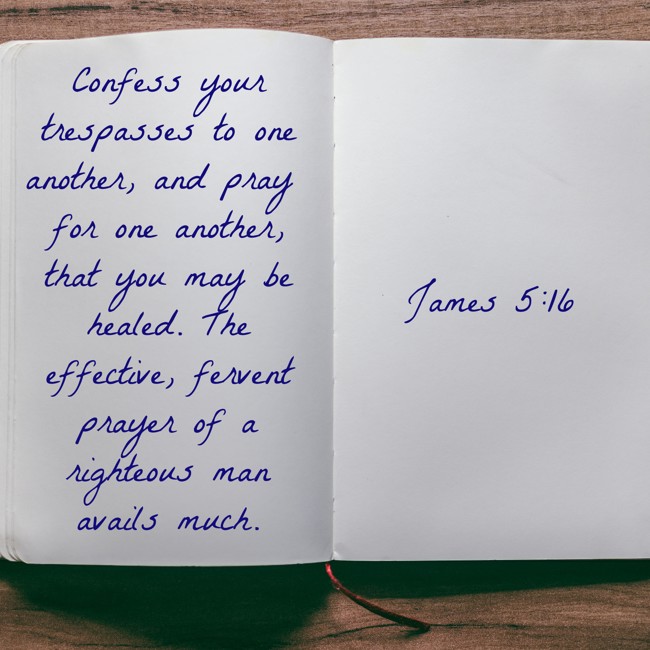 Confess your
trespasses to one
another, and pray
for one another,
that you may be
healed. The
effective, fervent
prayer of a
righteous man
avails much.
James 5:16